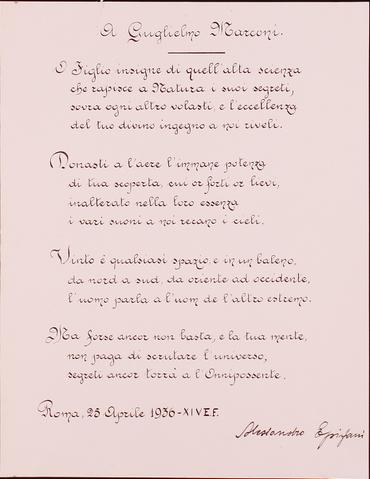 A Guglielmo Marconi.
O Figlio insigne di quell'alta scienza
che rapisce a Natura i suoi segreti,
sovra ogni altro volasti, e l'eccellenza
del tuo divino ingegno a noi riveli.
Donasti a l'aere l'immane potenza
di tua scoperta, cui or forti or lievi,
inalterato nella loro essenza
i vari suoni a noi recano i cieli.
Vinto è qualsiasi spazio, e in un baleno,
da nord a sud, da oriente ad occidente,
l'uomo parla a l'uom de l'altro estremo.
Ma forse ancor non basta, e la tua mente,
non paga di scrutare l'universo,
segreti ancor torrà a l'Onnipossente.
Roma, 25 Aprile 1936-XIV E.F.
Alessandro Epifani